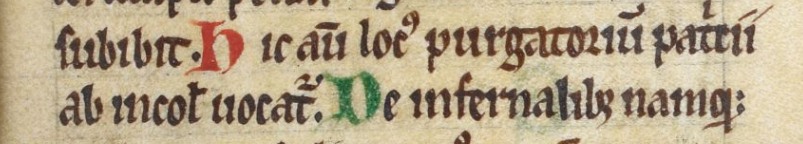 subibit. Hic aū loc⁹ purgatoriū pat̄cii
ab incoł uocat᷑. De infernalibꝫ namqꝫ